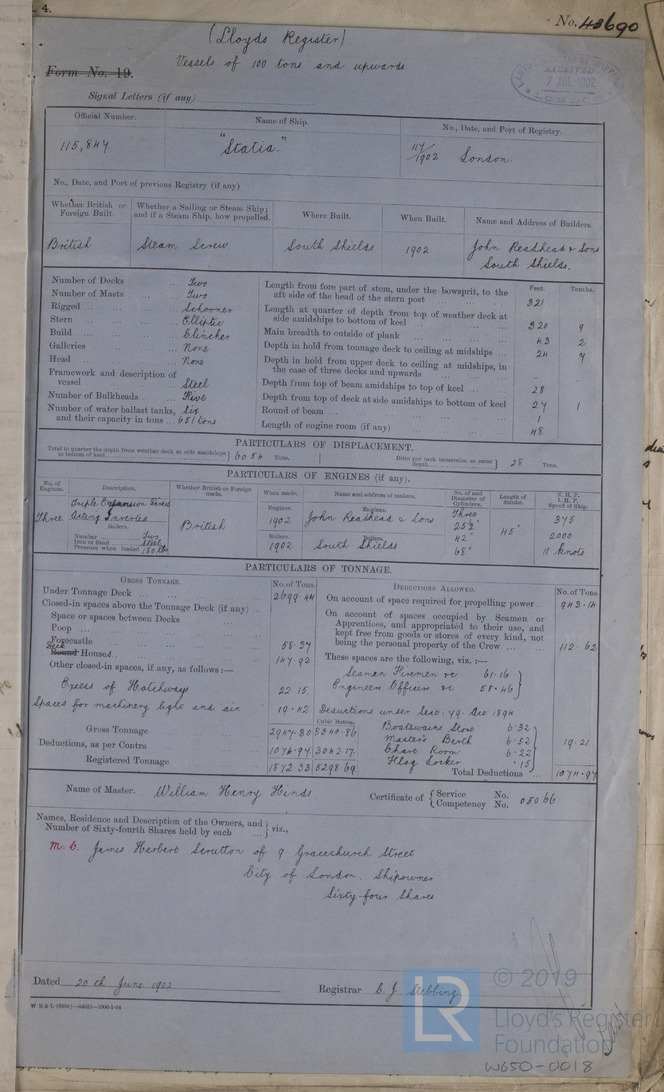 4.
No. 43690
(Lloyds Register)
Vessels of 100 tons and upwards
Form No. 19.
RECEIVED
7 JUL 1902
Signal Letters (if any)
Official Number. Name of Ship. No., Date, and Port of Registry.
115,847 "Statia." 117/1902 London.
No., Date, and Port of previous Registry (if any)
Whether British or Foreign Built. Whether a Sailing or Steam Ship; and if a Steam Ship, how propelled. Where Built. When Built. Name and Address of Builders.
British Steam Screw South Shields 1902 John Readhead & Sons South Shields.
Number of Decks ... Two
Number of Masts ... Two
Rigged ... Schooner
Stern ... Elliptic
Build ... Clincher
Galleries ... None
Head ... None
Framework and description of vessel ... Steel
Number of Bulkheads ... Five
Number of water ballast tanks, and their capacity in tons ... Six 651 tons
Feet. Tenths.
Length from fore part of stem, under the bowsprit, to the aft side of the head of the stern post 321
Length at quarter of depth from top of weather deck at side amidships to bottom of keel 320 9
Main breadth to outside of plank 43 2
Depth in hold from tonnage deck to ceiling at midships 24 7
Depth in hold from upper deck to ceiling at midships, in the case of three decks and upwards
Depth from top of beam amidships to top of keel 28
Depth from top of deck at side amidships to bottom of keel 27 1
Round of beam 1
Length of engine room (if any) 48
PARTICULARS OF DISPLACEMENT.
Total to quarter the depth from weather deck at side amidships to bottom of keel 6054 Tons.
Ditto per inch immersion at same depth 28 Tons.
PARTICULARS OF ENGINES (if any).
No. of Engines. Description. Whether British or Foreign made. When made. Name and address of makers. No. of and Diameter of Cylinders. Length of Stroke. N.H.P. I.H.P. Speed of Ship.
Three Triple Expansion Direct Acting Inverted British
Engines. 1902 Engines. John Readhead & Sons Three 25½" 42" 68" 45" 375 2000 11 knots
Boilers.
Number Two
Iron or Steel Steel
Pressure when loaded 180 lbs
Boilers. 1902 Boilers. South Shields
PARTICULARS OF TONNAGE.
GROSS TONNAGE. No. of Tons.
Under Tonnage Deck 2699.44
Closed-in spaces above the Tonnage Deck (if any)
Space or spaces between Decks
Poop
Forecastle 58.37
Round Houses Deck 147.92
Other closed-in spaces, if any, as follows:—
Excess of Hatchways 22.15
Spaces for machinery light and air 19.42
Cubic Metres.
Gross Tonnage 2947.30 8340.86
Deductions, as per Contra 1074.97 3042.17
Registered Tonnage 1872.33 5298.69
DEDUCTIONS ALLOWED. No. of Tons.
On account of space required for propelling power 943.14
On account of spaces occupied by Seamen or Apprentices, and appropriated to their use, and kept free from goods or stores of every kind, not being the personal property of the Crew 112.62
These spaces are the following, viz.:—
Seamen Firemen &c 61.16
Engineers Officers &c 51.46
Deductions under Sec. 79. Act 1894
Boatswains Store 6.32
Master's Berth 6.52
Chart Room 6.22
Flag Locker .15
19.21
Total Deductions 1074.97
Name of Master. William Henry Hinds Certificate of Service No. Competency No. 05066
Names, Residence and Description of the Owners, and Number of Sixty-fourth Shares held by each viz.,
M. O. James Herbert Scrutton of 9 Gracechurch Street
City of London. Shipowner
Sixty-four Shares
Dated 20th June 1902 Registrar C. J. Stebbing
© 2019
LR
Lloyd's Register
Foundation
W650-0018